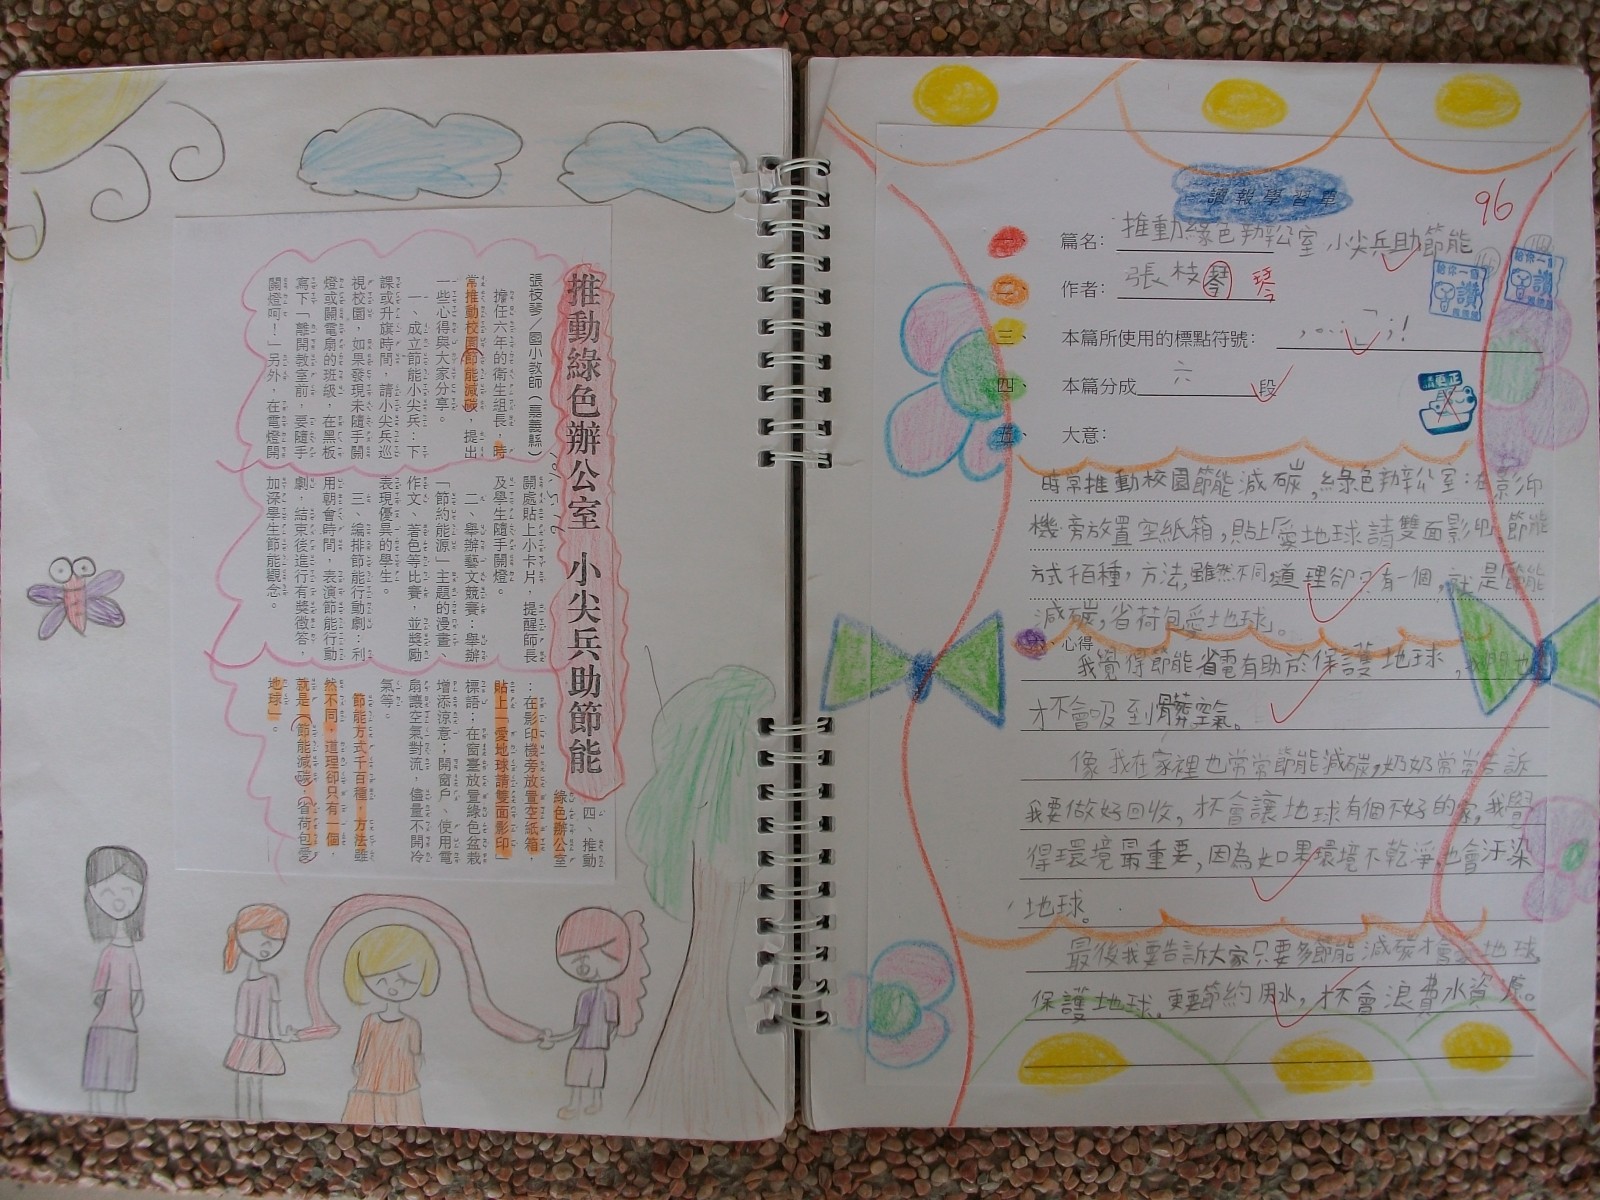 推動綠色辦公室 小尖兵助節能
張枝琴／國小教師（嘉義縣）
擔任六年的衛生組長，時
常推動校園節能減碳，提出
一些心得與大家分享。
一、成立節能小尖兵：下
課或升旗時間，請小尖兵巡
視校園，如果發現未隨手關
燈或關電扇的班級，在黑板
寫下「離開教室前，要隨手
關燈呵！」另外，在電燈開
關處貼上小卡片，提醒師長
及學生隨手關燈。
二、舉辦藝文競賽：舉辦
「節約能源」主題的漫畫、
作文、著色等比賽，並獎勵
表現優異的學生。
三、編排節能行動劇：利
用朝會時間，表演節能行動
劇，結束後進行有獎徵答，
加深學生節能觀念。
四、推動
綠色辦公室
：在影印機旁放置空紙箱，
貼上「愛地球請雙面影印」
標語；在窗臺放置綠色盆栽
增添涼意；開窗戶、使用電
扇讓空氣對流，儘量不開冷
氣等。
節能方式千百種，方法雖
然不同，道理卻只有一個，
就是「節能減碳，省荷包愛
地球」。
讀報學習單
96
一、 篇名：推動綠色辦公室 小尖兵助節能
二、 作者：張枝琴 琴
三、 本篇所使用的標點符號：，。、：「」；！
四、 本篇分成六段
五、 大意：
給你一個讚
給你一個讚
請更正
時常推動校園節能減碳，綠色辦公室：在影印
機旁放置空紙箱，貼上「愛地球請雙面影印」節能
方式千百種，方法雖然不同，道理卻只有一個，就是節能
減碳，省荷包愛地球」。
六、心得
我覺得節能省電有助於保護地球，我們也
才不會吸到髒空氣。
像我在家裡也常常節能減碳，奶奶常常告訴
我要做好回收，才會讓地球有個不好的家，我覺
得環境最重要，因為如果環境不乾淨，也會汙染
地球。
最後我要告訴大家只要多節能減碳才會愛地球，
保護地球。更要節約用水，才不會浪費水資源。